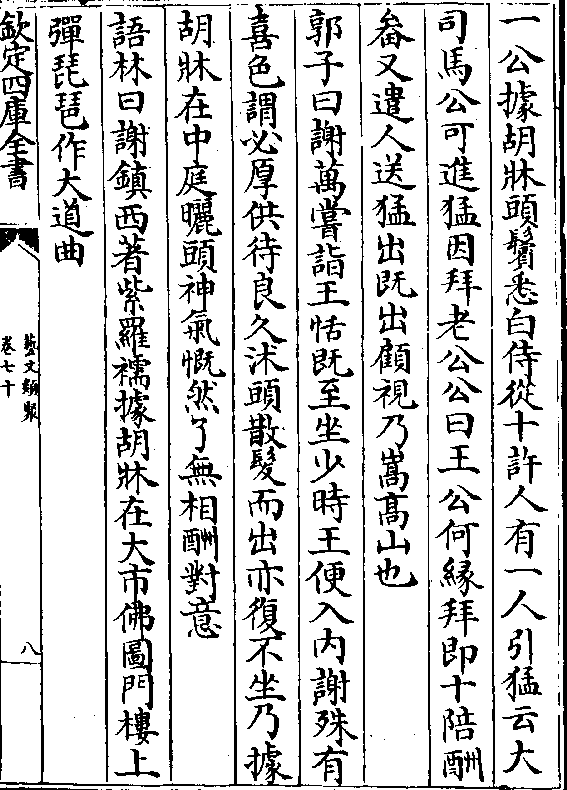 一公據胡牀頭鬢悉白侍從十許人有一人引猛云大
司馬公可進猛因拜老公公曰王公何縁拜即十陪酬
畚又遣人送猛出既出顧視乃嵩髙山也
郭子曰謝萬嘗詣王恬既至坐少時王便入内謝殊有
喜色謂必厚供待良久沐頭散髮而出亦復不坐乃據
胡牀在中庭曬頭神氣慨然了無相酬對意
語林曰謝鎮西著紫羅襦據胡牀在大市佛圖門樓上
彈琵琶作大道曲
欽定四庫全書
藝文類聚
卷七十
八